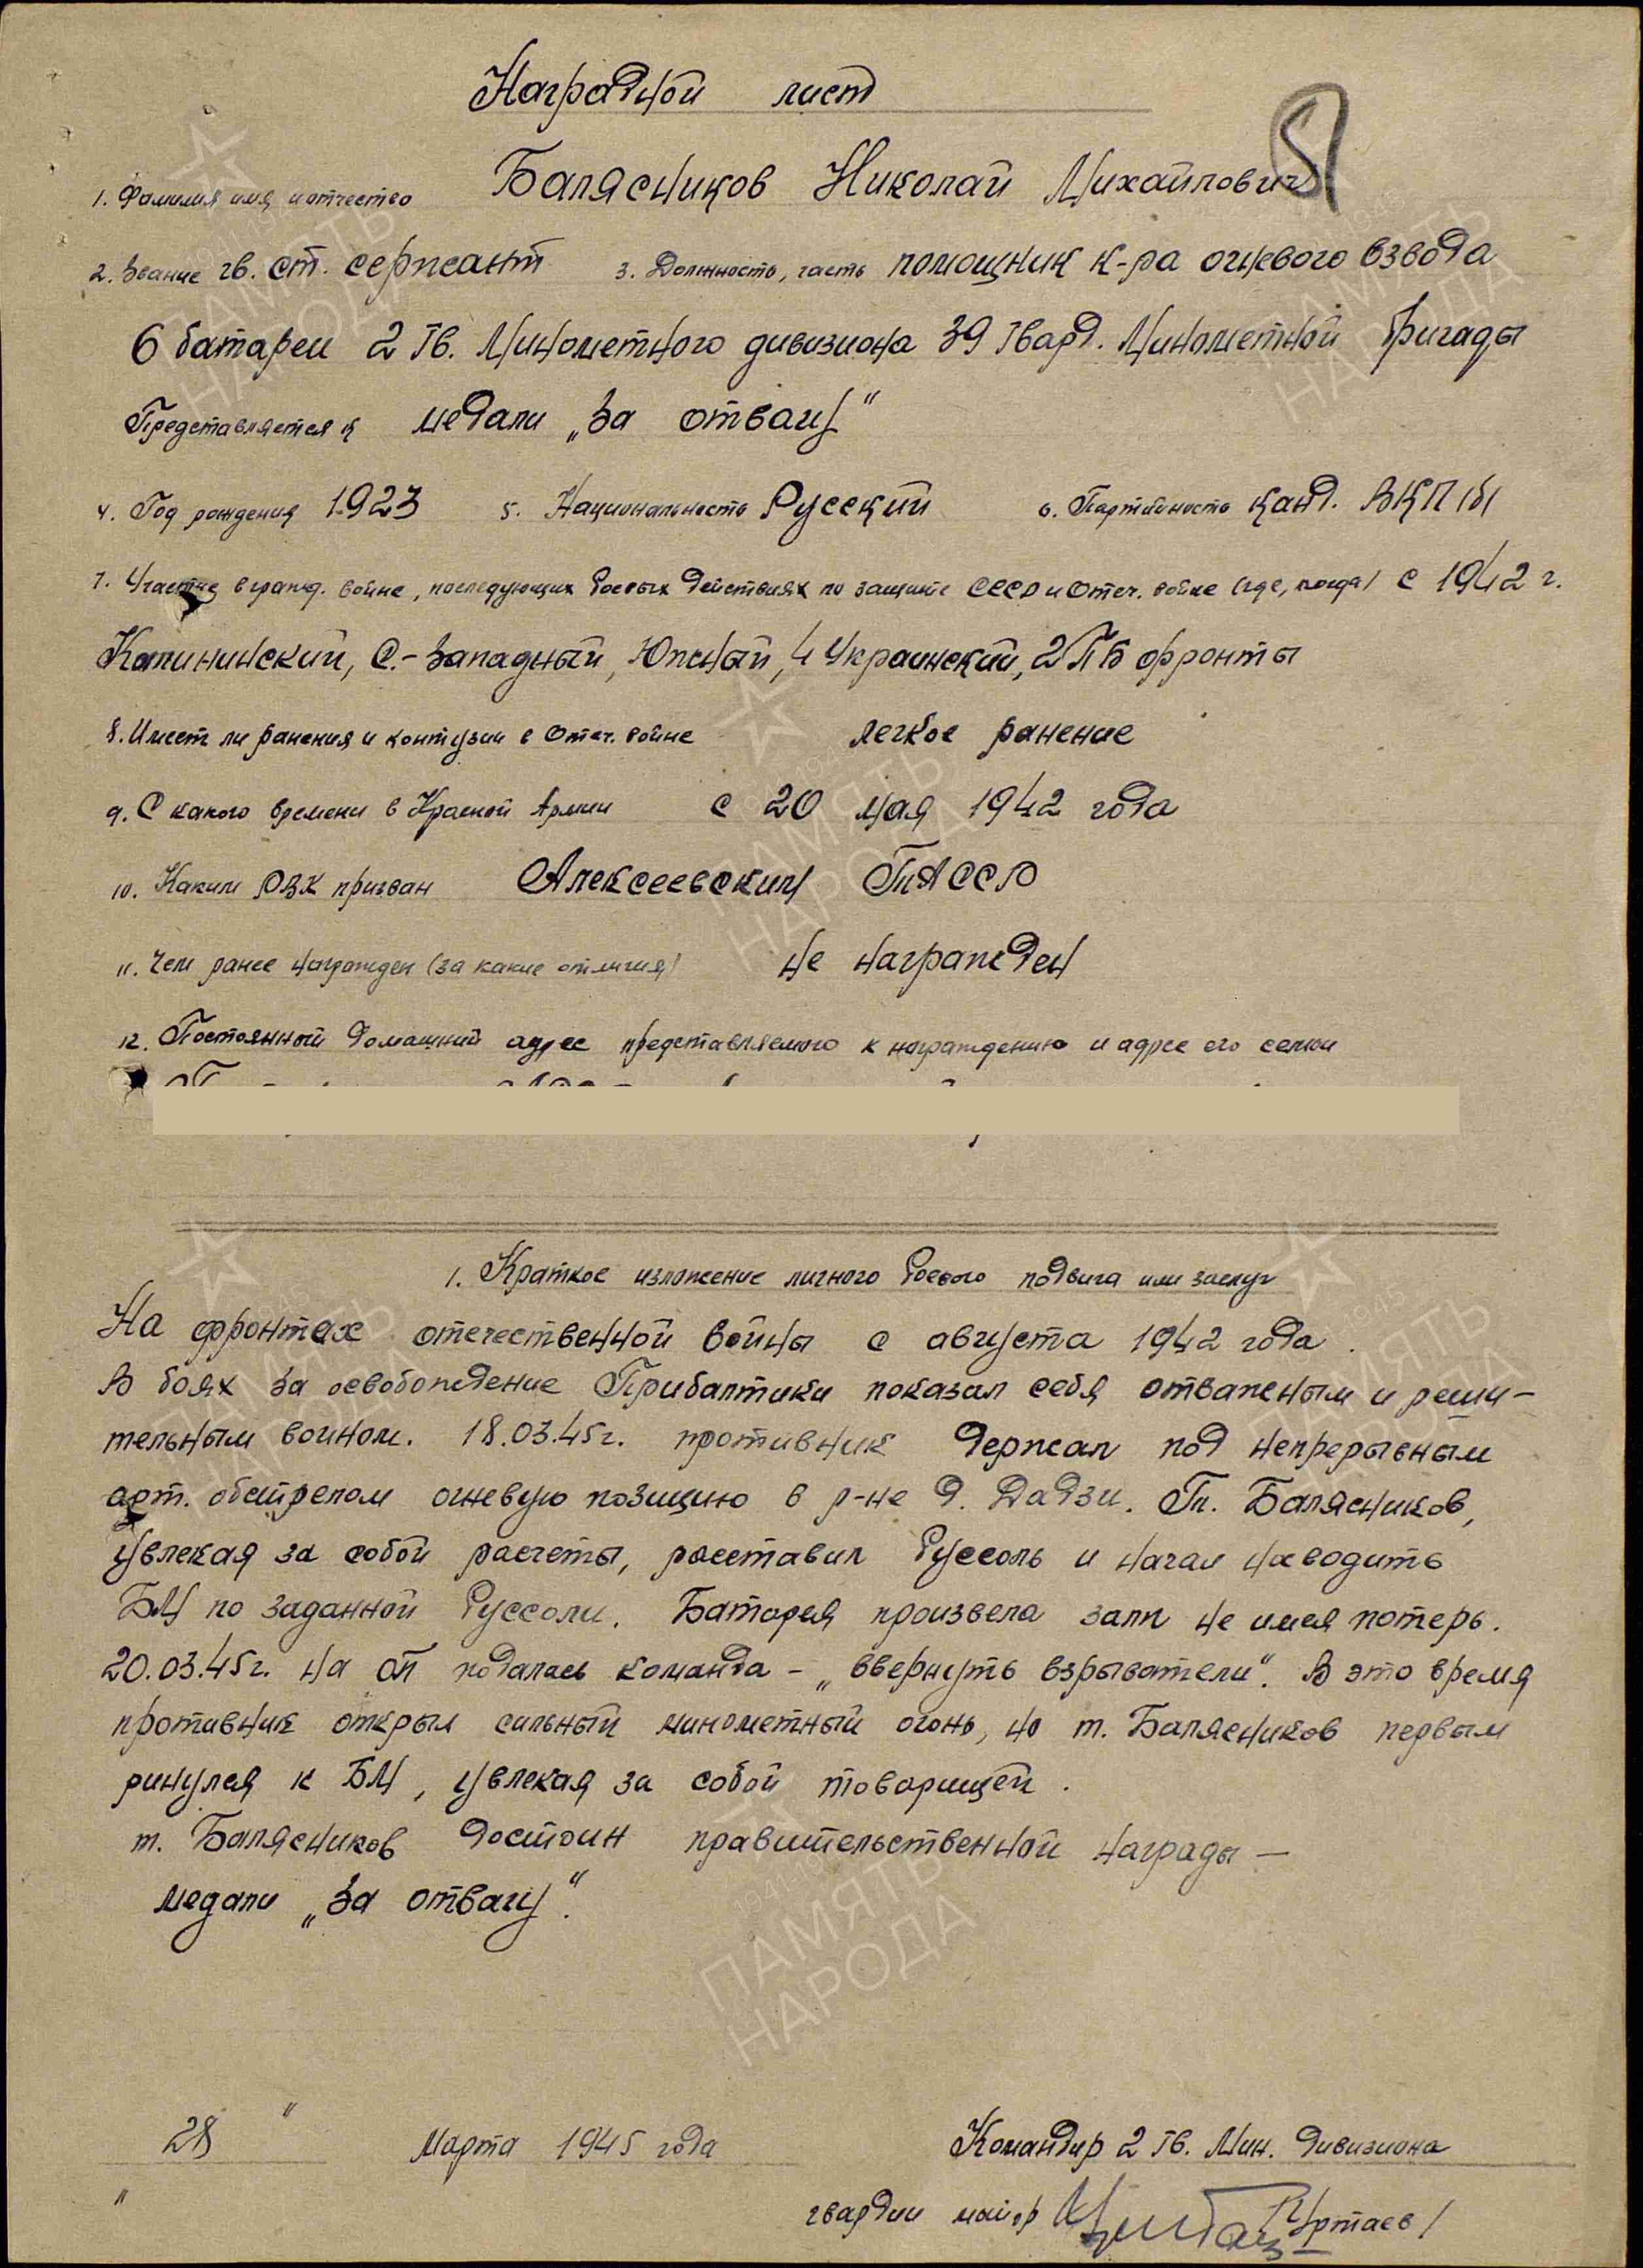 Наградной лист
1. Фамилия имя и отчество Балясников Николай Михайлович
2. Звание гв. ст. сержант 3. Должность, часть помощник к-ра огневого взвода
6 батареи 2 Гв. Минометного дивизиона 39 Гвард. Минометной бригады
Представляется к медали „За отвагу“
4. Год рождения 1923 5. Национальность Русский 6. Партийность Канд. ВКП(б)
7. Участие в гражд. войне, последующих боевых действиях по защите СССР и Отеч. войне (где, когда) с 1942 г.
Калининский, С.-Западный, Южный, 4 Украинский, 2 ПБ фронты
8. Имеет ли ранения и контузии в Отеч. войне легкое ранение
9. С какого времени в Красной Армии с 20 мая 1942 года
10. Каким РВК призван Алексеевским ТАССР
11. Чем ранее награжден (за какие отличия) Не награжден
12. Постоянный домашний адрес представляемого к награждению и адрес его семьи
1. Краткое изложение личного боевого подвига или заслуг
На фронтах отечественной войны с августа 1942 года.
В боях за освобождение Прибалтики показал себя отважным и реши-
тельным воином. 18.03.45г. противник держал под непрерывным
арт. обстрелом огневую позицию в р-не д. Дадзи. Гв. Балясников,
увлекая за собой расчеты, расставил буссоль и начал наводить
БМ по заданной буссоли. Батарея произвела залп не имея потерь.
20.03.45г. на ОП подалась команда - „ввернуть взрыватели“. В это время
противник открыл сильный минометный огонь, но т. Балясников первым
ринулся к БМ, увлекая за собой товарищей.
т. Балясников достоин правительственной награды —
медали „За отвагу“.
28 " Марта 1945 года Командир 2 Гв. Мин. дивизиона
" гвардии майор /Уртаев/
ПАМЯТЬ
НАРОДА